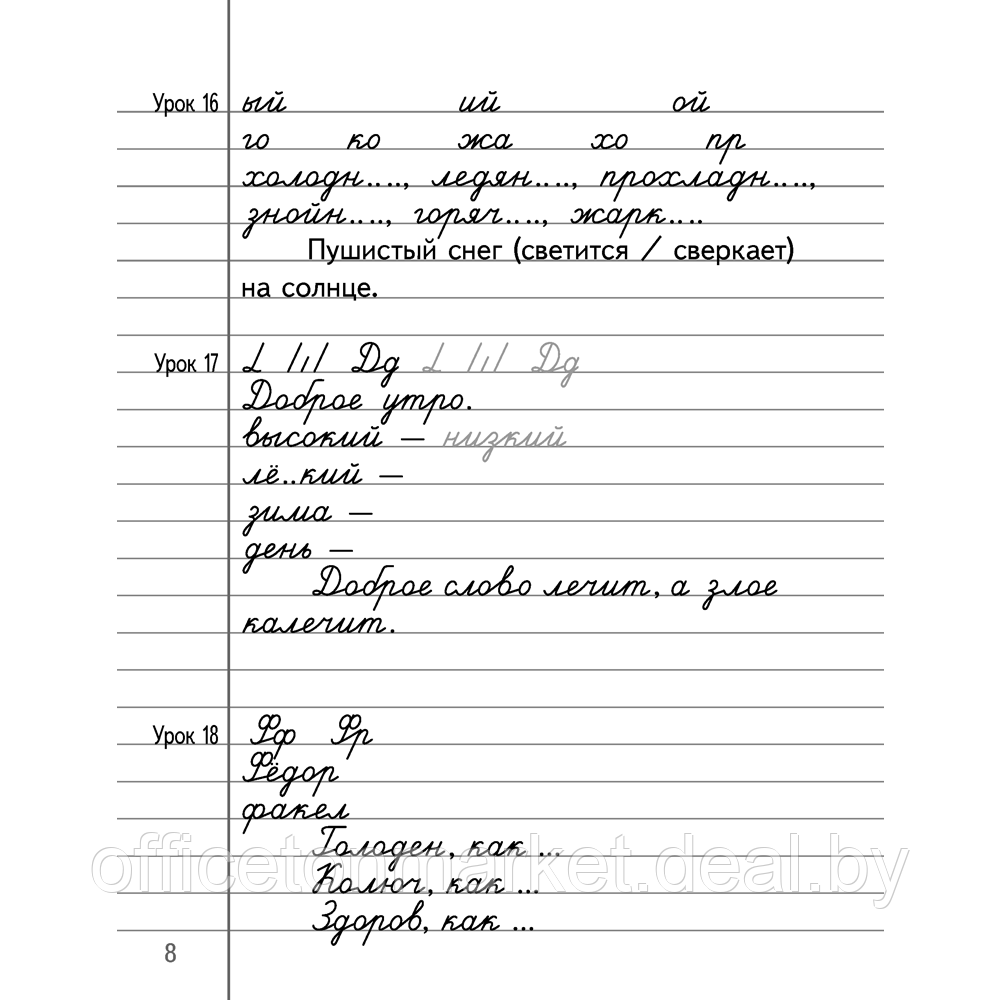 Урок 16 ый ий ой
го ко жа хо пр
холодн...., ледян...., прохладн....,
знойн...., горяч...., жарк....
Пушистый снег (светится / сверкает)
на солнце.
Урок 17 Дд Дд
Доброе утро.
высокий — низкий
лё..кий —
зима —
день —
Доброе слово лечит, а злое
калечит.
Урок 18 Фф Фр
Фёдор
факел
Голоден, как ...
Колюч, как ...
Здоров, как ...
officetonmarket.deal.by
8